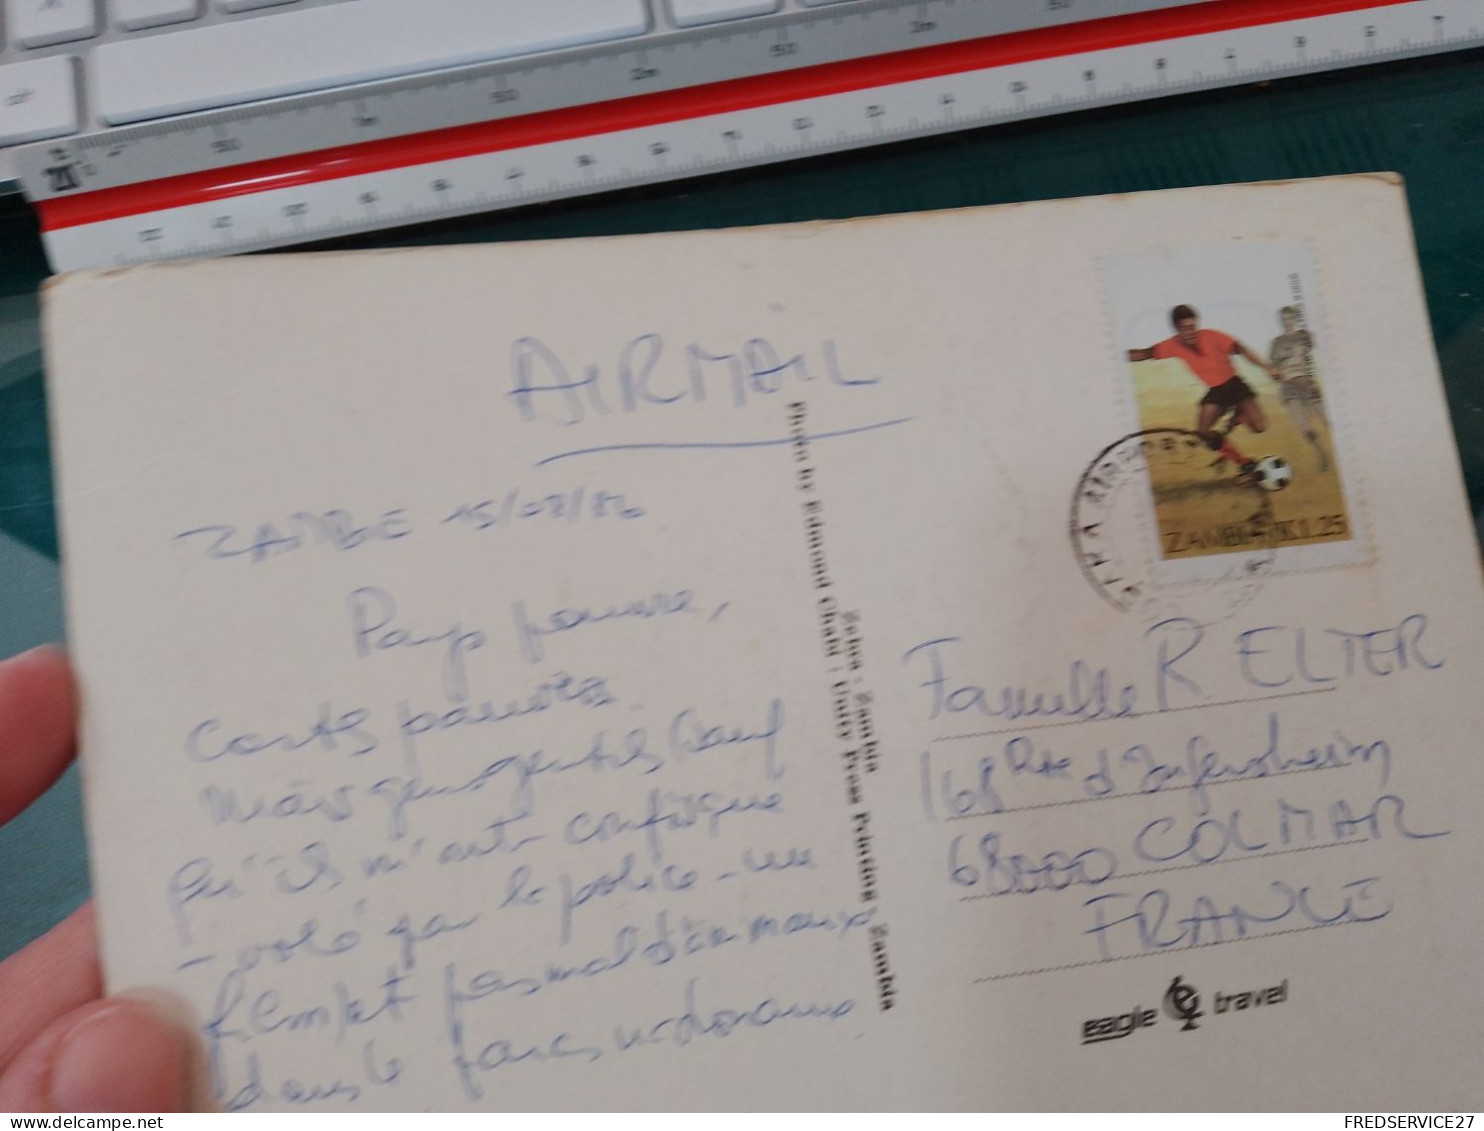 AIRMAIL
ZAMBIE 15/08/86
Pays pauvre,
Cartes pauvres
mais gens gentils sauf
qu'ils m'ont confisqué
- volé par la police - un
pas mal d'animaux
dans le parc
Photo by Edmond Chahl : Unity Press Printing - Zambia
Zebra - Zambia
ZAMBIA K1.25
Famille R. ELTER
168 Rte d'Ingersheim
68000 COLMAR
FRANCE
eagle travel
FREDSERVICE27